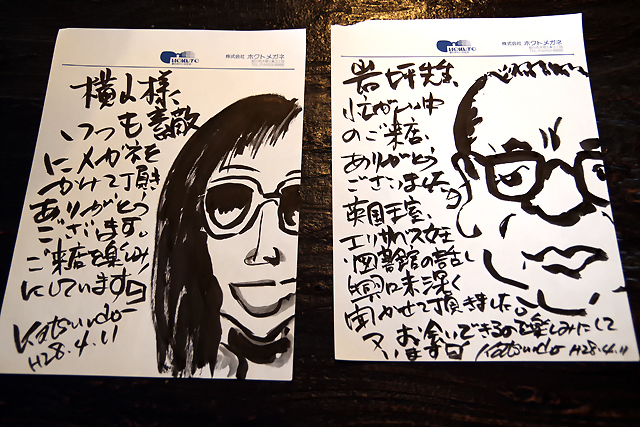 HOKUTO
株式会社 ホクトメガネ
横山様、
いつも素敵
にメガネを
かけて頂き
ありがとう
ございます。
ご来店を楽しみ
にしています
Katsundo
H28.4.11
HOKUTO
株式会社 ホクトメガネ
岩坪先生、
忙がしい中
のご来店、
ありがとう
ございました
英国王室、
エリザベス女王
図書館の話し
興味深く
聞かせて頂きました。
又、お会いできるのを楽しみにして
います
Katsundo H28.4.11